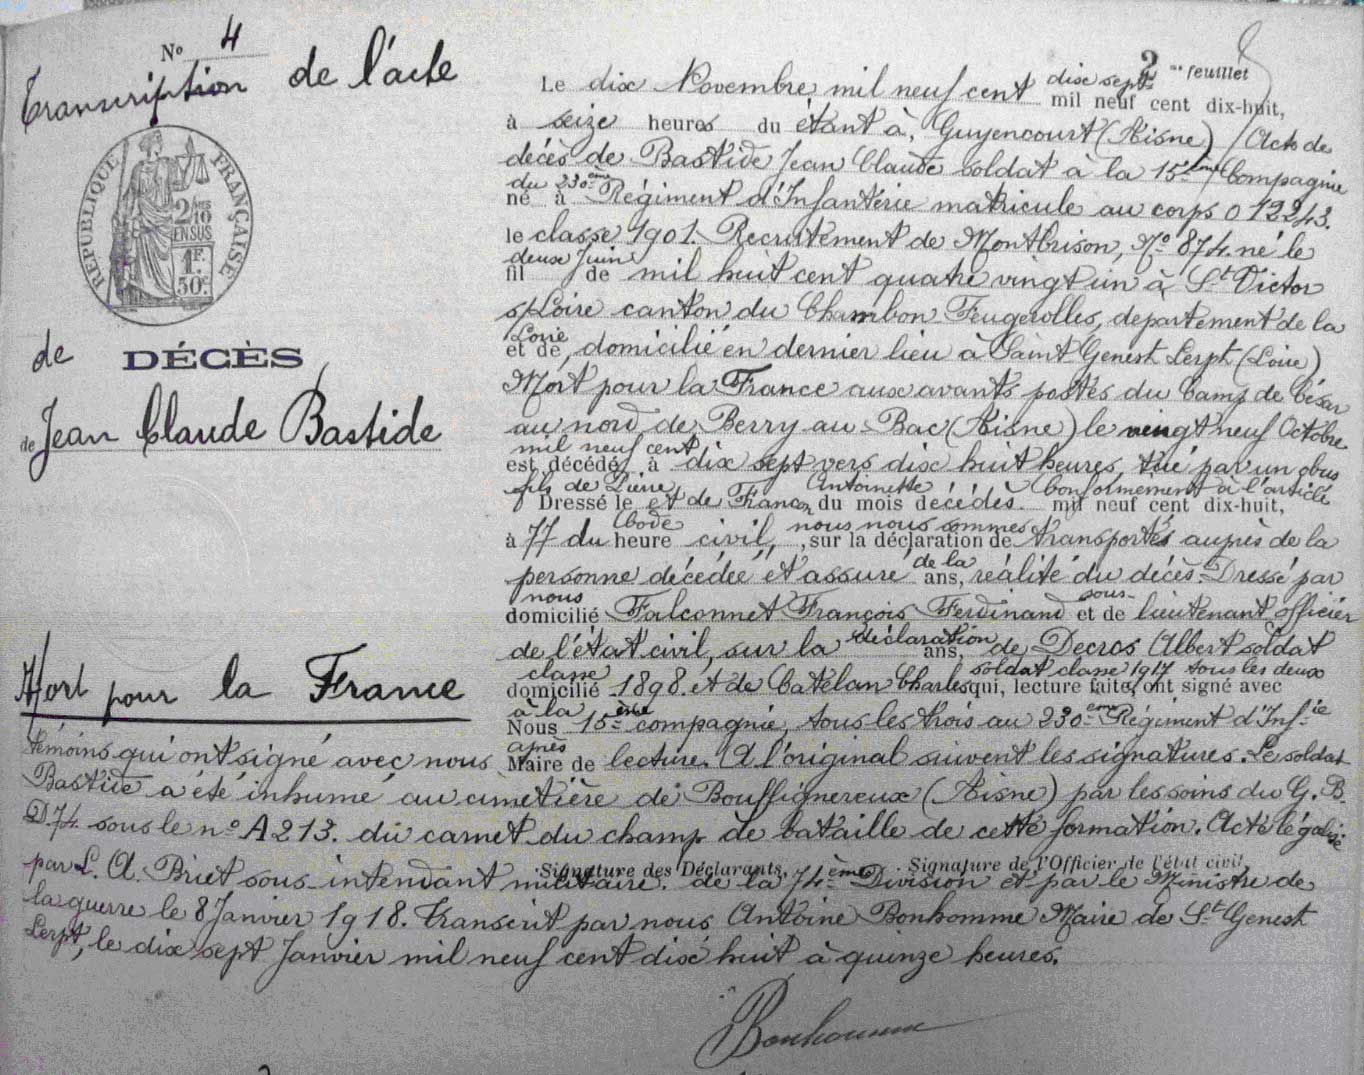 Nº 4
Transcription de l'acte
RÉPUBLIQUE FRANÇAISE
2/10
EN SUS
1F.
50c.
de DÉCÈS
de Jean Claude Bastide
Mort pour la France
2 me feuillet
Le dix Novembre mil neuf cent dix sept mil neuf cent dix-huit,
à seize heures du étant à, Guyencourt (Aisne) Acte de
décès de Bastide Jean Claude soldat à la 15ème Compagnie
du 230ème né à Régiment d'Infanterie matricule au corps 012243.
le classe 1901. Recrutement de Montbrison, Nº 874. né le
deux Juin fil de mil huit cent quatre vingt un à St Victor
s/Loire canton du Chambon Feugerolles, departement de la
Loire et de, domicilié en dernier lieu à Saint Genest Lerpt (Loire)
Mort pour la France aux avants postes du Camp de César
au nord de Berry au Bac (Aisne) le vingt neuf Octobre
mil neuf cent est décédé à dix sept vers dix huit heures, tué par un obus
fils de Pierre Dressé le et de Françon Antoinette du mois décédés. Conformément à l'article mil neuf cent dix-huit,
à 77 du Code heure civil, nous nous sommes , sur la déclaration de transportés auprès de la
personne décédée et assuré de la ans, réalité du décès. Dressé par
nous domicilié Falconnet François Ferdinand sous- et de lieutenant officier
de l'état civil, sur la déclaration ans, de Decros Albert soldat
classe domicilié 1898. et de Catelan Charles soldat classe 1917 tous les deux qui, lecture faite, ont signé avec
à la Nous 15ème compagnie, tous les trois au 230ème Régiment d'Inf.ie
témoins qui ont signé avec nous après Maire de lecture. A l'original suivent les signatures. Le soldat
Bastide a été inhumé au cimetière de Bouffignereux (Aisne) par les soins du G. B.
D 74 sous le nº A 213. du carnet du champ de bataille de cette formation. Acte légalisé
Signature des Déclarants, Signature de l'Officier de l'état civil,
par L. A. Briet sous-intendant militaire. de la 74ème Division et par le Ministre de
la guerre le 8 Janvier 1918. Transcrit par nous Antoine Bonhomme Maire de St Genest
Lerpt, le dix sept Janvier mil neuf cent dix huit à quinze heures.
Bonhomme